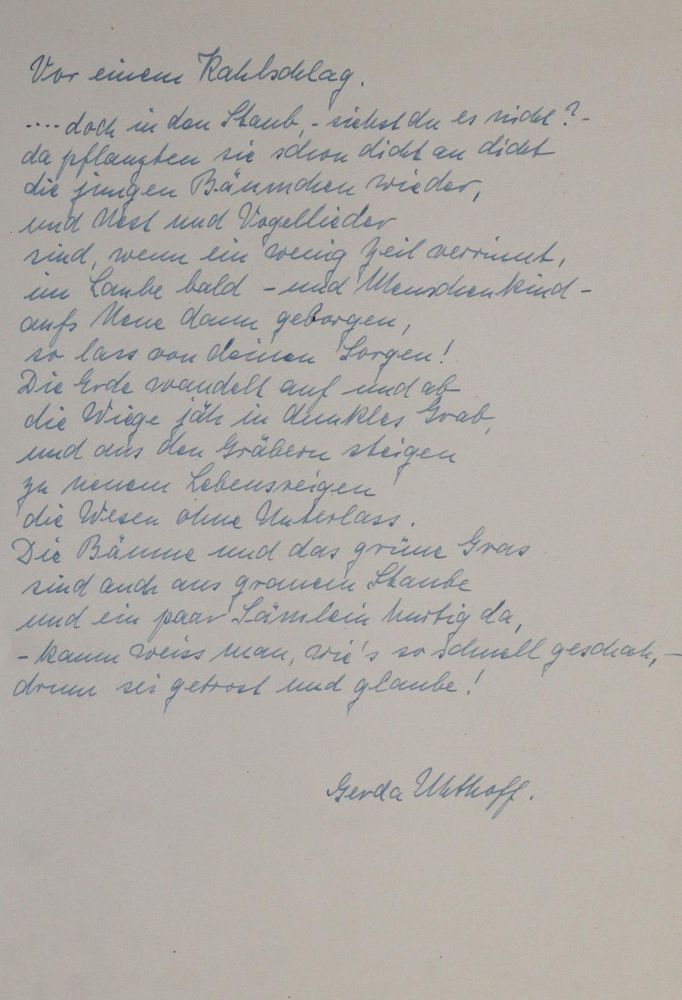 Vor einem Kahlschlag.
....doch in den Staub, - siehst du es nicht? -
da pflanzten sie schon dicht an dicht
die jungen Bäumchen wieder,
und Nest und Vogellieder
sind, wenn ein wenig Zeit verrinnt,
im Laube bald - und Menschenkind -
aufs Neue dann geborgen,
so lass von deinen Sorgen!
Die Erde wandelt auf und ab
die Wiege jäh in dunkles Grab,
und aus den Gräbern steigen
zu neuem Lebensreigen
die Wesen ohne Unterlass.
Die Bäume und das grüne Gras
sind auch aus grauem Staube
und ein paar Sämlein hurtig da,
- kaum weiss man, wie's so schnell geschah, -
drum sei getrost und glaube!
Gerda Uhthoff.